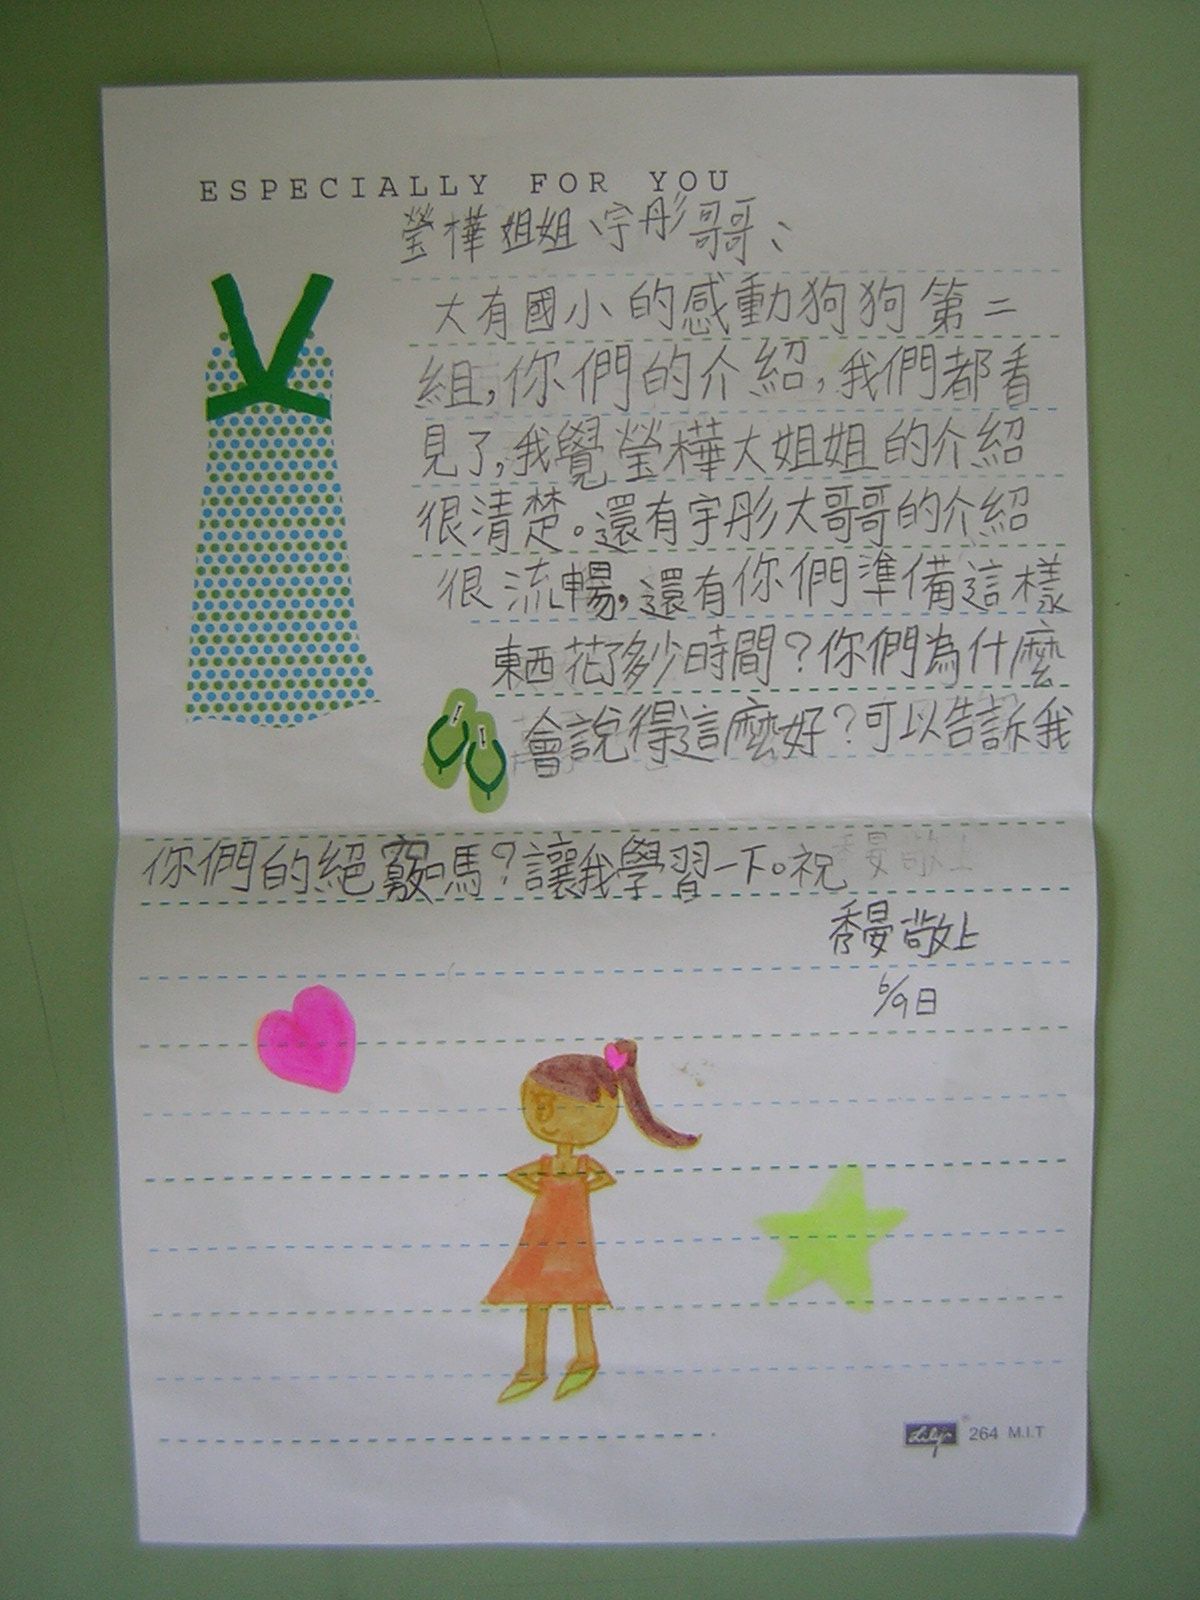 ESPECIALLY FOR YOU
瑩樺姐姐、宇彤哥哥、
大有國小的感動狗狗第二
組,你們的介紹,我們都看
見了,我覺瑩樺大姐姐的介紹
很清楚。還有宇彤大哥哥的介紹
很流暢,還有你們準備這樣
東西花了多少時間?你們為什麼
會說得這麼好?可以告訴我
你們的絕竅嗎?讓我學習一下。祝
秀晏敬上
6/9日
Lily 264 M.I.T